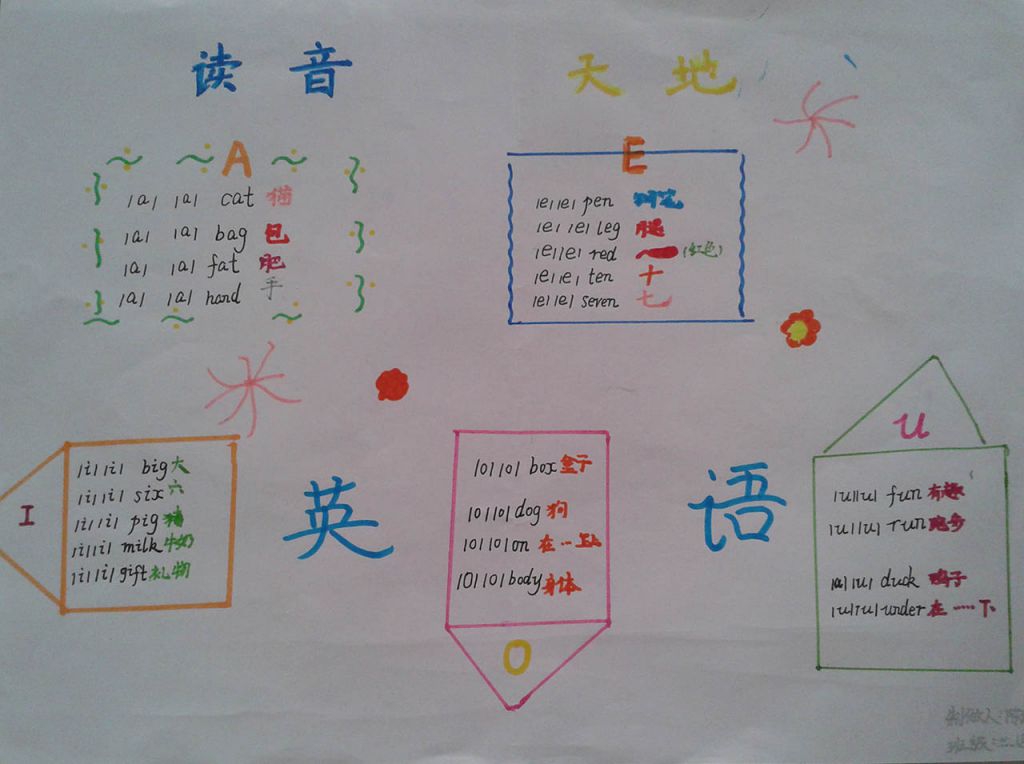 读音 天地
A
/a/ /a/ cat 猫
/a/ /a/ bag 包
/a/ /a/ fat 肥
/a/ /a/ hand 手
E
/e/ /e/ pen 钢笔
/e/ /e/ leg 腿
/e/ /e/ red (红色)
/e/ /e/ ten 十
/e/ /e/ seven 七
I
/i/ /i/ big 大
/i/ /i/ six 六
/i/ /i/ pig 猪
/i/ /i/ milk 牛奶
/i/ /i/ gift 礼物
英 语
/o/ /o/ box 盒子
/o/ /o/ dog 狗
/o/ /o/ on 在…上
/o/ /o/ body 身体
O
U
/u/ /u/ fun 有趣
/u/ /u/ run 跑步
/u/ /u/ duck 鸭子
/u/ /u/ under 在……下
制做人:陈
班级:三